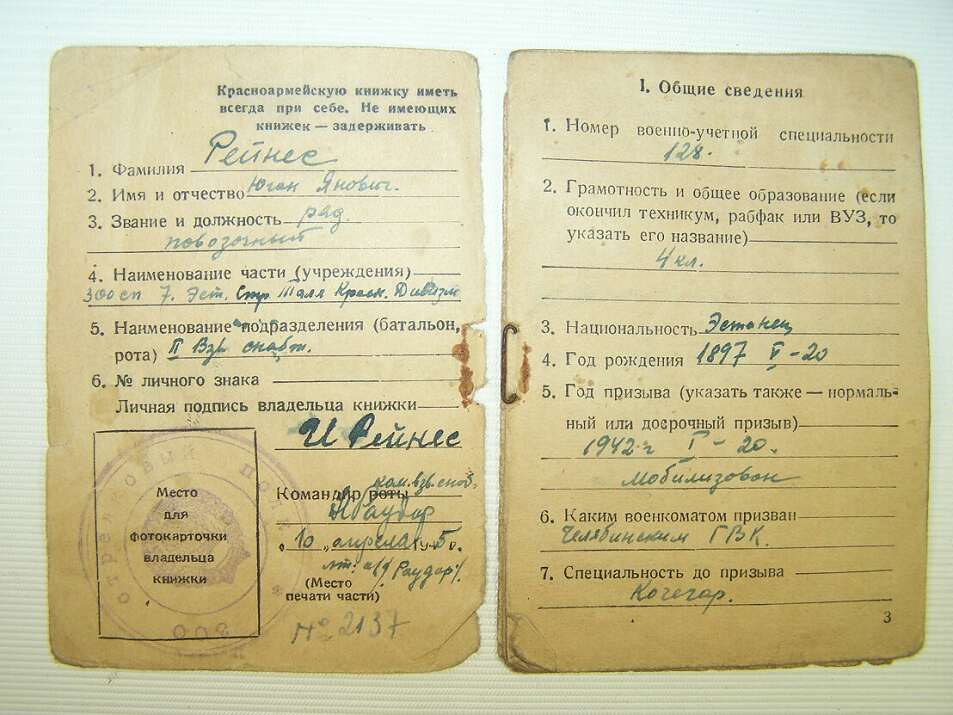 Красноармейскую книжку иметь
всегда при себе. Не имеющих
книжек — задерживать
1. Фамилия Рейнес
2. Имя и отчество Юган Янович.
3. Звание и должность ряд.
повозочный
4. Наименование части (учреждения)
300 сп 7. Эст. Стр. Талл Красн. Дивизи
5. Наименование подразделения (батальон,
рота) II Взв. снабж.
6. № личного знака
Личная подпись владельца книжки
И Рейнес
Место
для
фотокарточки
владельца
книжки
СТРЕЛКОВЫЙ ПОЛК
300
ком. взв. снаб.
Командир роты
„10„ апреля 5 г.
лт. Раудар
(Место
печати части)
№ 2137
1. Общие сведения
1. Номер военно-учетной специальности
128.
2. Грамотность и общее образование (если
окончил техникум, рабфак или ВУЗ, то
указать его название)
4 кл.
3. Национальность Эстонец
4. Год рождения 1897 V-20
5. Год призыва (указать также — нормаль-
ный или досрочный призыв)
1942 г I-20.
мобилизован
6. Каким военкоматом призван
Челябинским ГВК.
7. Специальность до призыва
Кочегар.
3